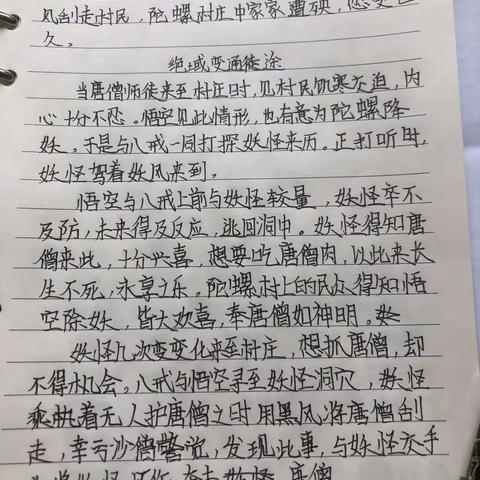 风刮走村民，陀螺村庄中家家遭殃，
久。
绝域变通徒涂
当唐僧师徒来至村庄时，见村民饥寒交迫，内
心十分不忍。悟空见此情形，也有意为陀螺降
妖。于是与八戒一同打探妖怪来历。正打听时，
妖怪驾着妖风来到。
悟空与八戒上前与妖怪较量，妖怪卒不
及防，未来得及反应，逃回洞中。妖怪得知唐
僧来此，十分兴喜，想要吃唐僧肉，以此来长
生不死，永享之乐。陀螺村上的民众得知悟
空除妖，皆大欢喜，奉唐僧如神明。
妖怪几次变变化来至村庄，想抓唐僧，却
不得机会。八戒与悟空寻至妖怪洞穴，妖怪
乘机着无人护唐僧之时用黑风将唐僧刮
走，幸亏沙僧警觉，发现此事，与妖怪交手
唐僧